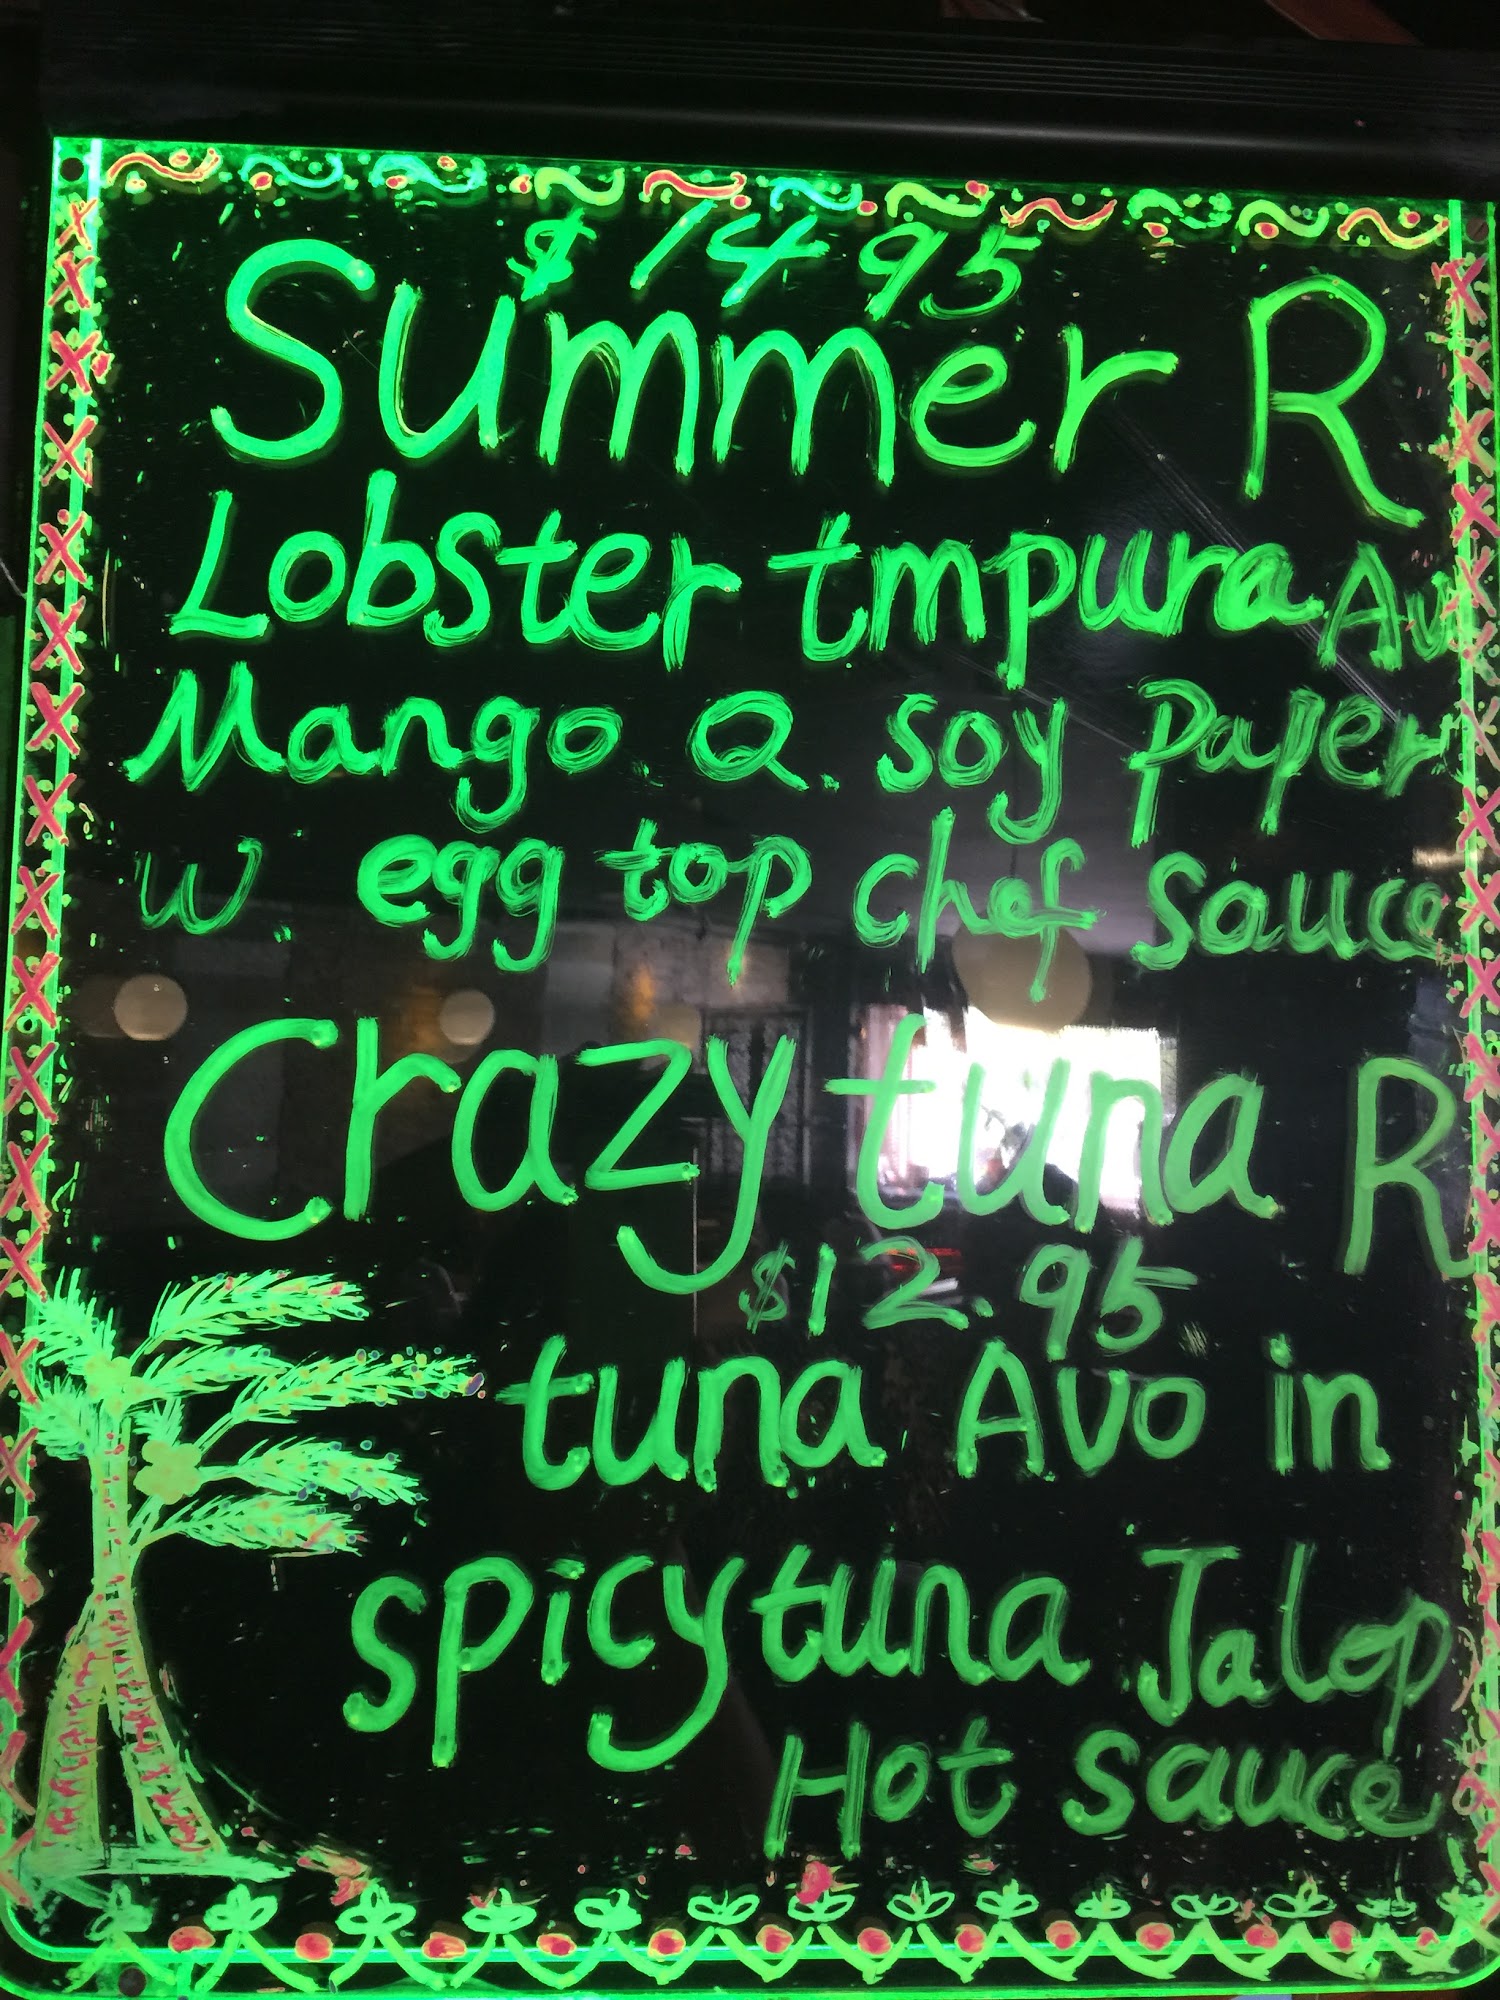 $14.95
Summer R
Lobster tmpura Av
Mango Q. soy paper
w. egg top chef sauce
Crazy tuna R
$12.95
tuna Avo in
spicy tuna Jalop
Hot sauce